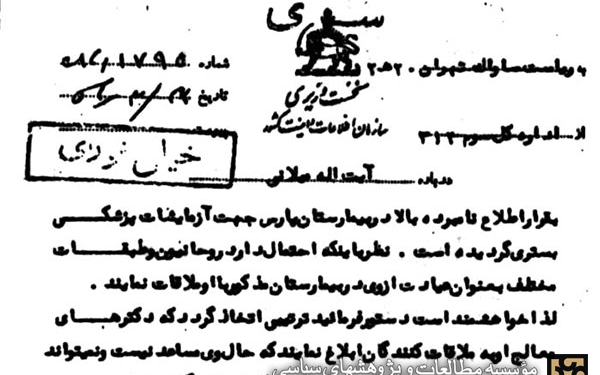 سری
به ریاست ساواک تهران ۲۰ ه ۲
شماره
نخست وزیری
تاریخ
سازمان اطلاعات و امنیت کشور
از اداره کل سوم ۳۱۲
پیوست
خیلی فوری
درباره آیت اله میلانی
بقرار اطلاع نامبرده بالا در بیمارستان پارس جهت آزمایشات پزشکی
بستری گردیده است . نظر باینکه احتمال دارد روحانیون و طبقات
مختلف بعنوان عیادت از وی در بیمارستان مذکور با او ملاقات نمایند .
لذا خواهشمند است دستور فرمائید ترتیبی اتخاذ گردد که دکترهای
معالج او به ملاقات کنندگان ابلاغ نمایند که حال وی مساعد نیست و نمیتواند
موسسه مطالعات و پژوهشهای سیاسی